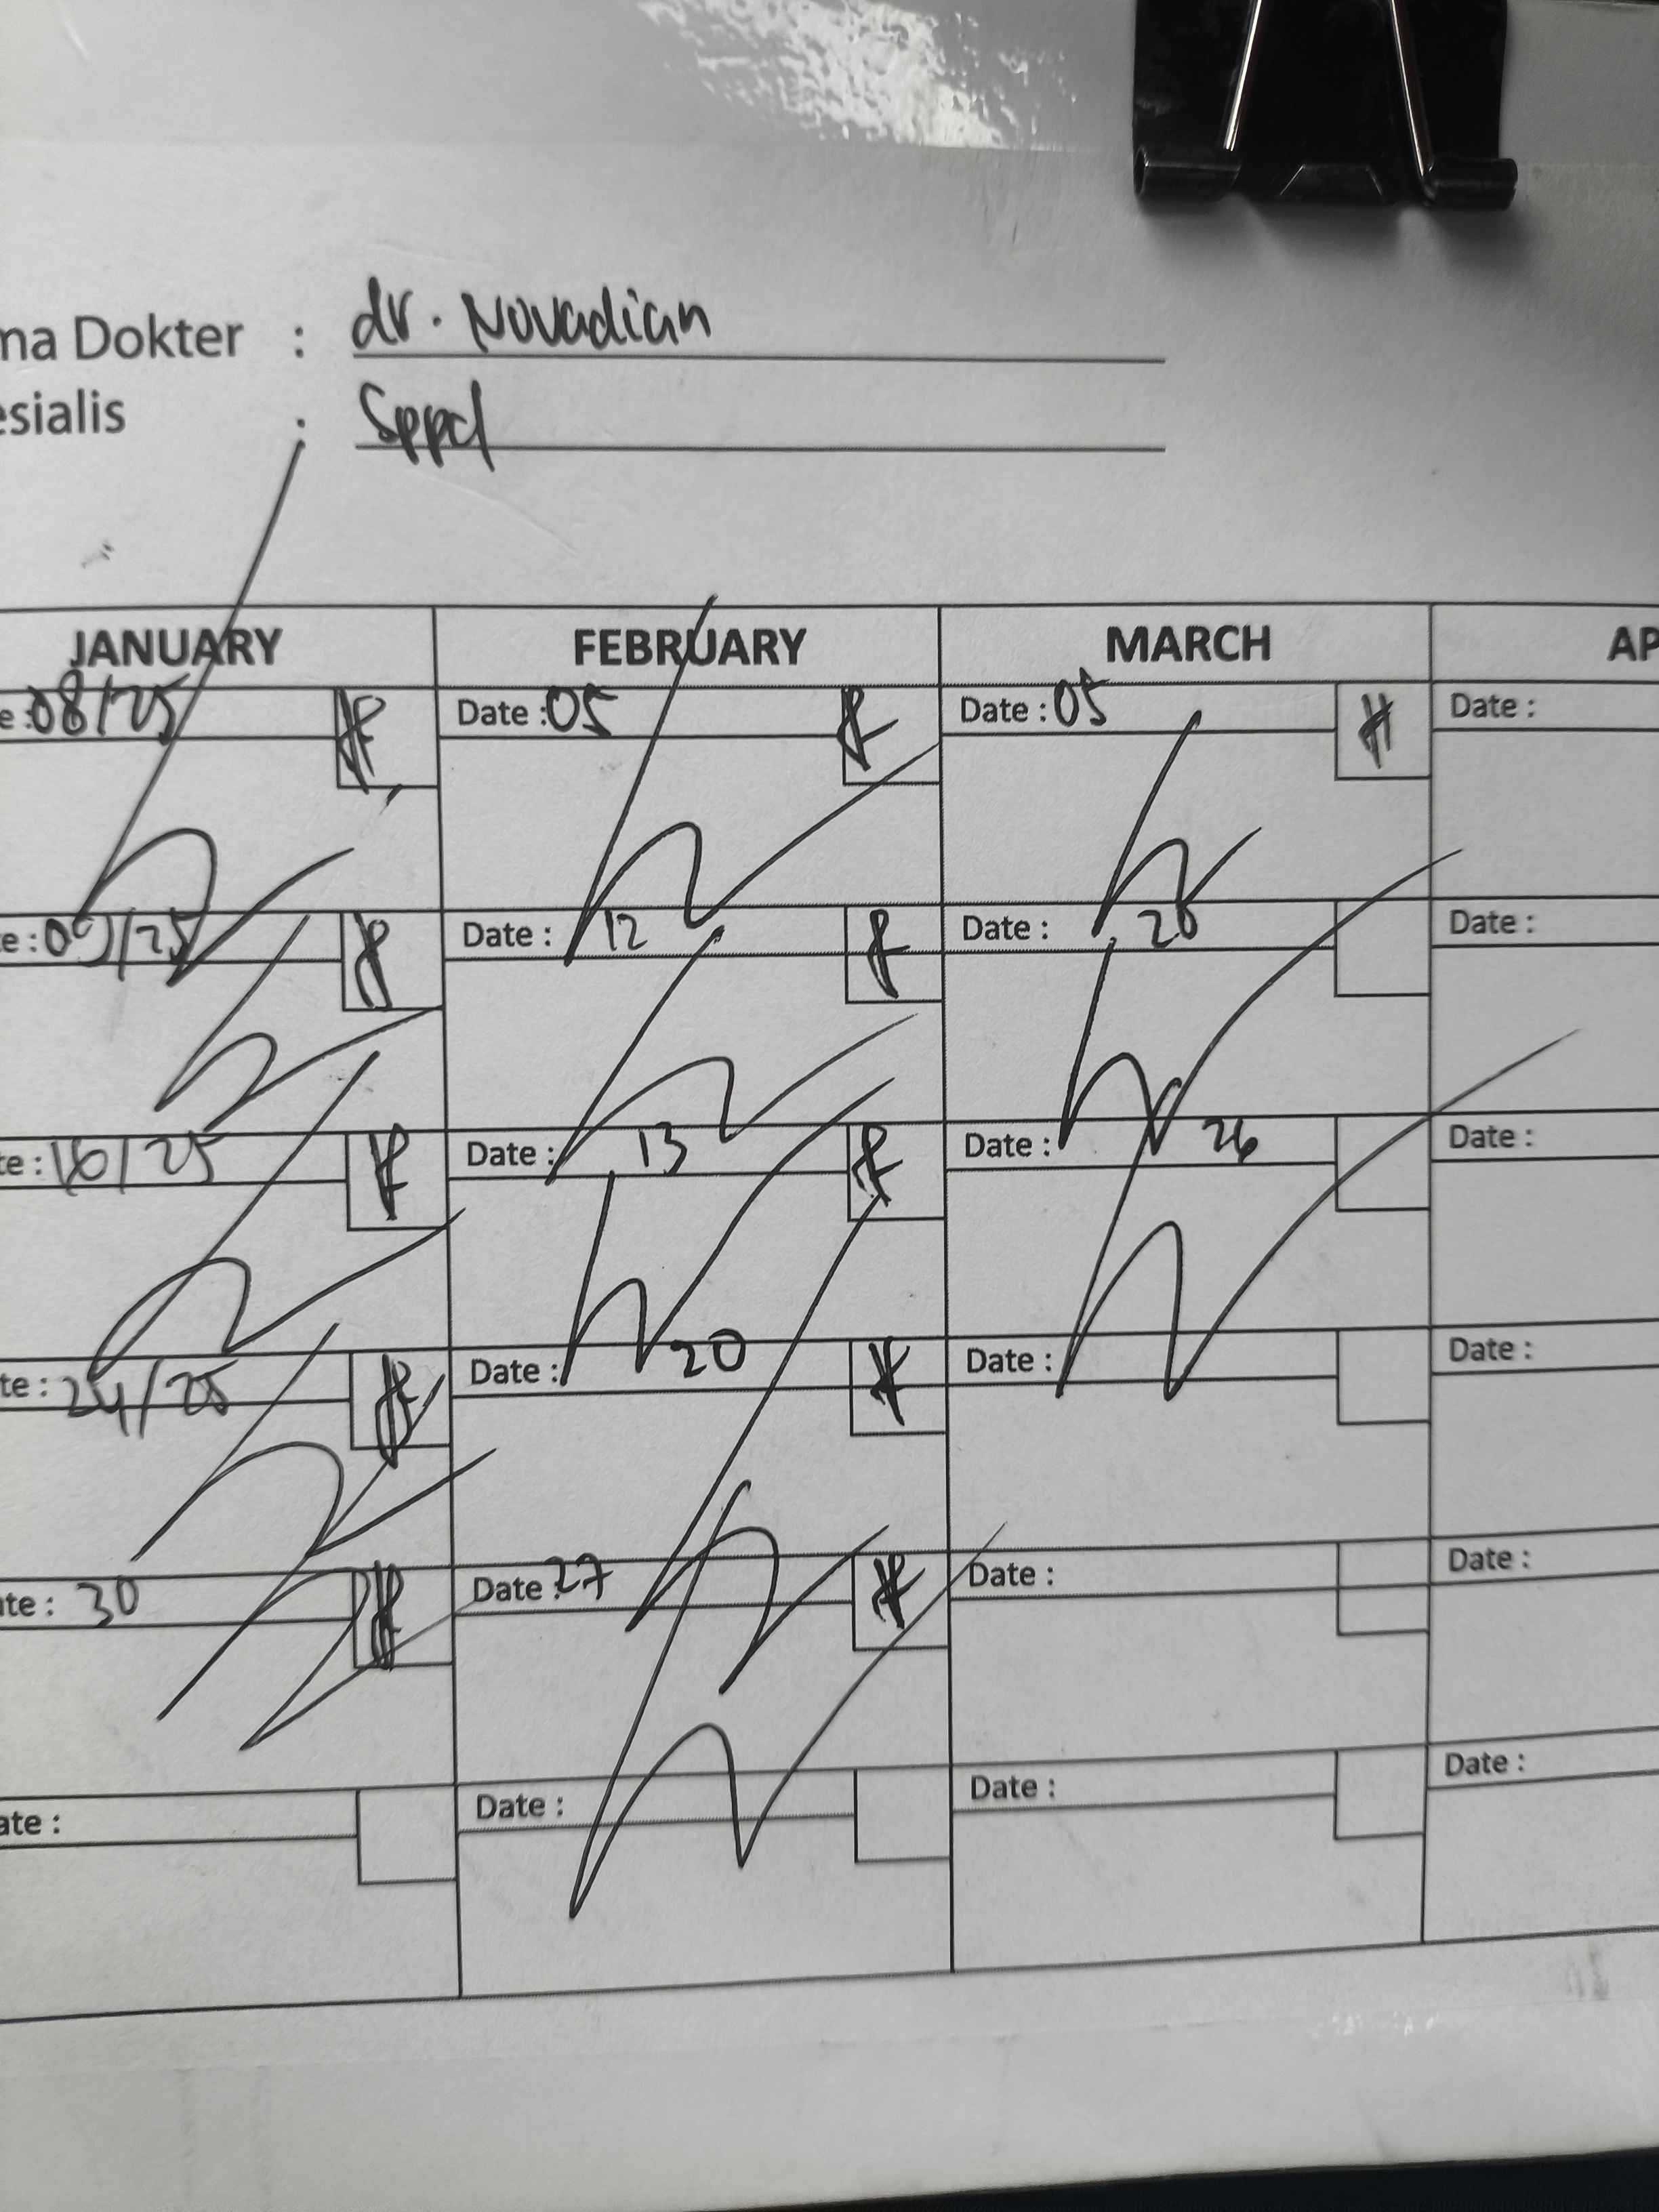 ma Dokter : dr. Novadian
esialis : Sppd
JANUARY FEBRUARY MARCH AP
e : 08/25 Date : 05 Date : 05 Date :
te : 09/25 Date : 12 Date : Date :
te : 16/25 Date : 13 Date : 26 Date :
te : 24/25 Date : 20 Date : Date :
ate : 30 Date : 27 Date : Date :
ate : Date : Date : Date :